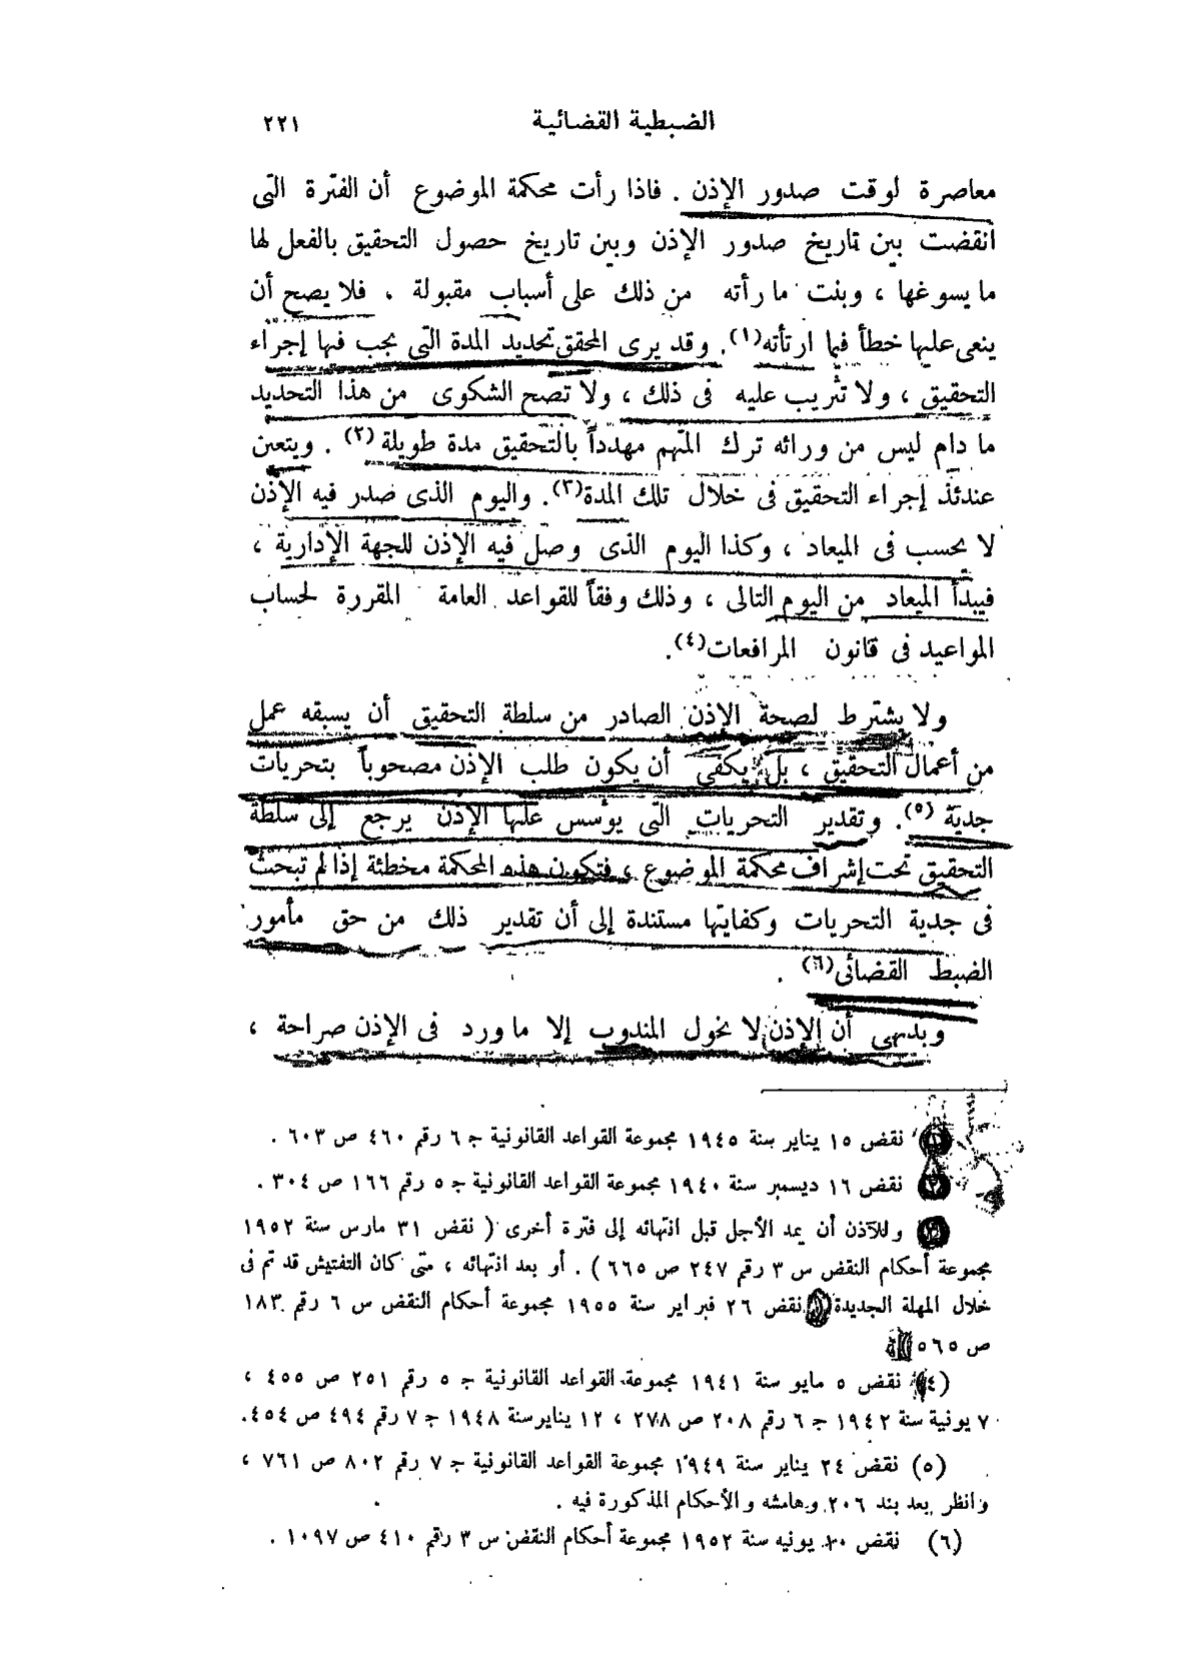 الضبطية القضائية ٢٢١
معاصرة لوقت صدور الإذن . فاذا رأت محكمة الموضوع أن الفترة التى
انقضت بين تاريخ صدور الإذن وبين تاريخ حصول التحقيق بالفعل لها
ما يسوغها ، وبنت ما رأته من ذلك على أسباب مقبولة ، فلا يصح أن
ينعى عليها خطأ فيما ارتأته(١). وقد يرى المحقق تحديد المدة التى يجب فيها إجراء
التحقيق ، ولا تثريب عليه فى ذلك ، ولا تصح الشكوى من هذا التحديد
ما دام ليس من ورائه ترك المتهم مهدداً بالتحقيق مدة طويلة (٢) . ويتعين
عندئذ إجراء التحقيق فى خلال تلك المدة(٣). واليوم الذى صدر فيه الإذن
لا يحسب فى الميعاد ، وكذا اليوم الذى وصل فيه الإذن للجهة الإدارية ،
فيبدأ الميعاد من اليوم التالى ، وذلك وفقاً للقواعد العامة المقررة لحساب
المواعيد فى قانون المرافعات(٤).
ولا يشترط لصحة الإذن الصادر من سلطة التحقيق أن يسبقه عمل
من أعمال التحقيق ، بل يكفى أن يكون طلب الإذن مصحوباً بتحريات
جدية (٥). وتقدير التحريات التى يؤسس عليها الإذن يرجع إلى سلطة
التحقيق تحت إشراف محكمة الموضوع ، فتكون هذه المحكمة مخطئة إذا لم تبحث
فى جدية التحريات وكفايتها مستندة إلى أن تقدير ذلك من حق مأمور
الضبط القضائى(٦) .
وبديهى أن الإذن لا يخول المندوب إلا ما ورد فى الإذن صراحة ،
(١) نقض ١٥ يناير سنة ١٩٤٥ مجموعة القواعد القانونية ج ٦ رقم ٤٦٠ ص ٦٠٣ .
(٢) نقض ١٦ ديسمبر سنة ١٩٤٠ مجموعة القواعد القانونية ج ٥ رقم ١٦٦ ص ٣٠٤ .
(٣) وللآذن أن يمد الأجل قبل انتهائه إلى فترة أخرى ( نقض ٣١ مارس سنة ١٩٥٢
مجموعة أحكام النقض س ٣ رقم ٢٤٧ ص ٦٦٥ ) . أو بعد انتهائه ، متى كان التفتيش قد تم فى
خلال المهلة الجديدة ( نقض ٢٦ فبراير سنة ١٩٥٥ مجموعة أحكام النقض س ٦ رقم ١٨٣
ص ٥٦٥
(٤) نقض ٥ مايو سنة ١٩٤١ مجموعة القواعد القانونية ج ٥ رقم ٢٥١ ص ٤٥٥ ،
٧ يونية سنة ١٩٤٢ ج ٦ رقم ٢٠٨ ص ٢٧٨ ، ١٢ يناير سنة ١٩٤٨ ج ٧ رقم ٤٩٤ ص ٤٥٤.
(٥) نقض ٢٤ يناير سنة ١٩٤٩ مجموعة القواعد القانونية ج ٧ رقم ٨٠٢ ص ٧٦١ ،
وانظر بعد بند ٢٠٦ وهامشه والأحكام المذكورة فيه .
(٦) نقض ٣٠ يونيه سنة ١٩٥٢ مجموعة أحكام النقض س ٣ رقم ٤١٠ ص ١٠٩٧ .